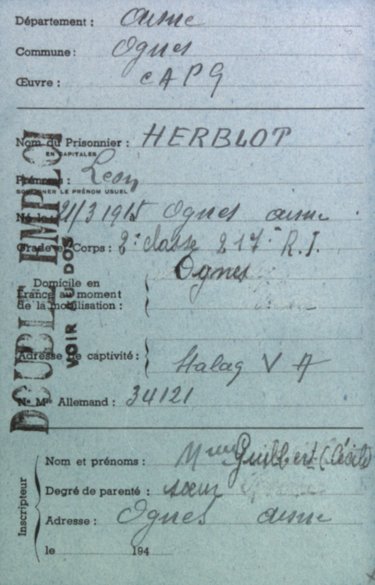 Département : Aisne
Commune : Ognes
Œuvre : CAPG
Nom du Prisonnier : HERBLOT
EN CAPITALES
Prénoms : Leon
SOULIGNER LE PRÉNOM USUEL
Né le : 21/3 1915 Ognes aisne
Grade et Corps : 2e classe 217e R.I.
Domicile en
France au moment
de la mobilisation : Ognes
Adresse de captivité : Stalag V A
N° Mle Allemand : 34121
DOUBLE EMPLOI
VOIR AU DOS
Inscripteur
Nom et prénoms : Mme Guilbert (Cécile)
Degré de parenté : sœur
Adresse : Ognes aisne
le 194